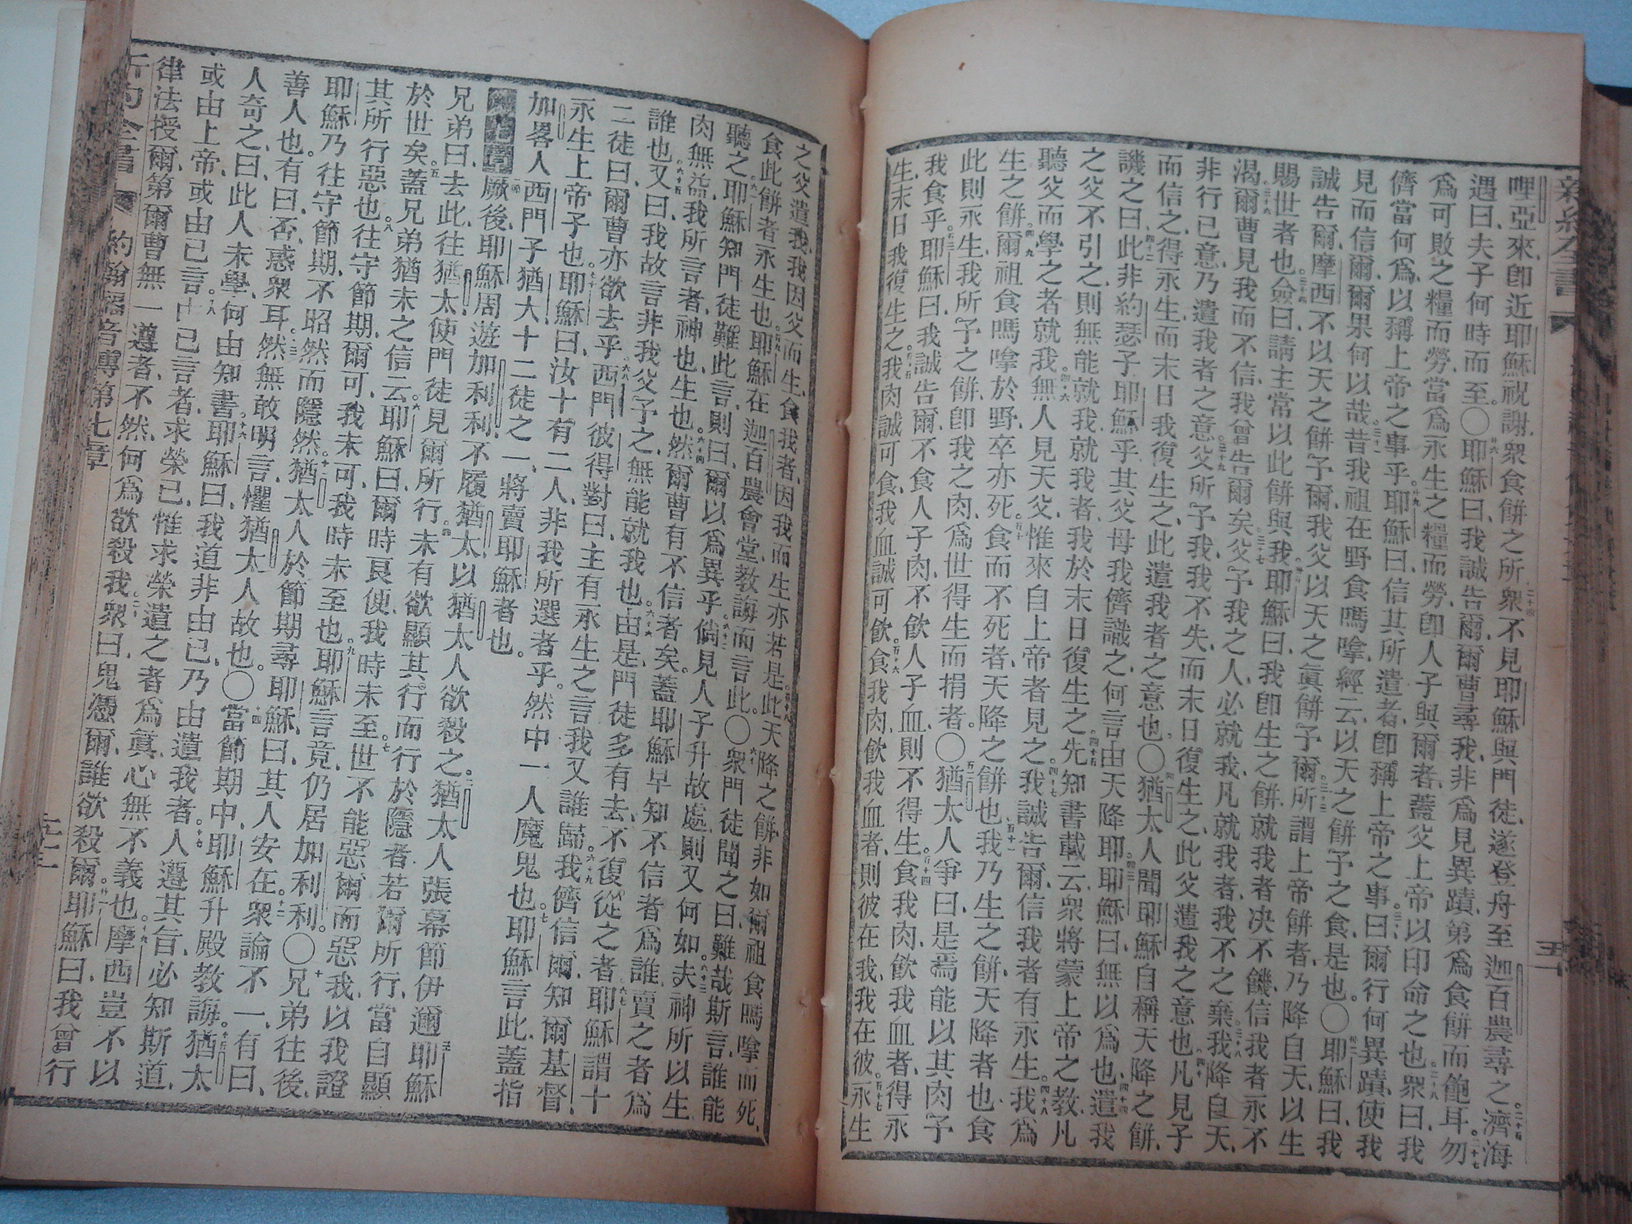 哩亞來、卽近耶穌祝謝、衆食餅之所、衆不見耶穌與門徒、遂登舟至迦百農尋之、濟海
遇曰、夫子何時而至。〇耶穌曰、我誠告爾、爾曹尋我、非爲見異蹟、第爲食餅而飽耳、勿
爲可敗之糧而勞、當爲永生之糧而勞、卽人子與爾者、蓋父上帝以印命之也、衆曰、我
儕當何爲、以稱上帝之事乎、耶穌曰、信其所遣者、卽稱上帝之事、曰、爾行何異蹟、使我
見而信爾、爾果何以哉、昔我祖在野食嗎嗱、經云、以天之餅予之食、是也。〇耶穌曰、我
誠告爾、摩西不以天之餅予爾、我父以天之眞餅予爾、所謂上帝餅者、乃降自天、以生
賜世者也、僉曰、請主常以此餅與我、耶穌曰、我卽生之餅、就我者决不饑、信我者永不
渴、爾曹見我而不信、我曾告爾矣、父予我之人必就我、凡就我者、我不之棄、我降自天、
非行已意、乃遣我者之意、父所予我、我不失、而末日復生之、此父遣我之意也、凡見子
而信之、得永生、而末日我復生之、此遣我者之意也、〇猶太人聞耶穌自稱天降之餅、
譏之曰、此非約瑟子耶穌乎、其父母我儕識之、何言由天降耶、耶穌曰、無以爲也、遣我
之父不引之、則無能就我、就我者、我於末日復生之、先知書載云、衆將蒙上帝之敎、凡
聽父而學之者、就我、無人見父、惟來自上帝者見之、我誠告爾、信我者有永生、我爲
生之餅、爾祖食嗎嗱於野、卒亦死、食而不死者、天降之餅也、我乃生之餅、天降者也、食
此則永生、我所予之餅、卽我之肉、爲世得生而捐者。〇猶太人爭曰、是焉能以其肉予
我食乎、耶穌曰、我誠告爾、不食人子肉、不飮人子血、則不得生、食我肉、飮我血者、得永
生、末日我復生之、我肉誠可食、我血誠可飮、食我肉、飮我血者、則彼在我、我在彼、永生
之父遣我、我因父而生、食我者、因我而生、亦若是、此天降之餅、非如爾祖食嗎嗱而死、
食此餅者永生也、耶穌在迦百農會堂敎誨而言此、〇衆門徒聞之曰、難哉斯言、誰能
聽之、耶穌知門徒難此言、則曰、爾以爲異乎、倘見人子升故處、則又何如、夫神所以生、
肉無益、我所言者、神也、生也、然爾曹有不信者矣、蓋耶穌早知不信者爲誰、賣之者爲
誰也、又曰、我故言非我父予之、無能就我也、由是門徒多有去、不復從之者、耶穌謂十
二徒曰、爾曹亦欲去乎、西門彼得對曰、主有永生之言、我又誰歸、我儕信爾、知爾基督、
永生上帝子也、耶穌曰、汝十有二人、非我所選者乎、然中一人魔鬼也、耶穌言此、蓋指
加畧人西門子猶大、十二徒之一、將賣耶穌者也。
第七章 厥後、耶穌周遊加利利、不履猶太、以猶太人欲殺之、猶太人張幕節伊邇、耶穌
兄弟曰、去此、往猶太、使門徒見爾所行、未有欲顯其行而行於隱者、若爾所行、當自顯
於世矣、蓋兄弟猶未之信云、耶穌曰、爾時良便、我時未至、世不能惡爾、而惡我、以我證
其所行惡也、往守節期、爾可、我未可、我時未至也、耶穌言竟、仍居加利利。〇兄弟往後、
耶穌乃往守節期、不昭然而隱然、猶太人於節期尋耶穌、曰、其人安在、衆論不一、有曰、
善人也、有曰、否、惑衆耳、然無敢明言、懼猶太人故也、〇當節期中、耶穌升殿敎誨、猶太
人奇之曰、此人未學、何由知書、耶穌曰、我道非由已、乃由遣我者、人遵其旨、必知斯道、
或由上帝、或由已言、由已言者、求榮已、惟求榮遣之者爲眞、心無不義也、摩西豈不以
律法授爾、第爾曹無一遵者、不然、何爲欲殺我、衆曰、鬼憑爾、誰欲殺爾、耶穌曰、我曾行
新約全書 約翰福音傳第七章